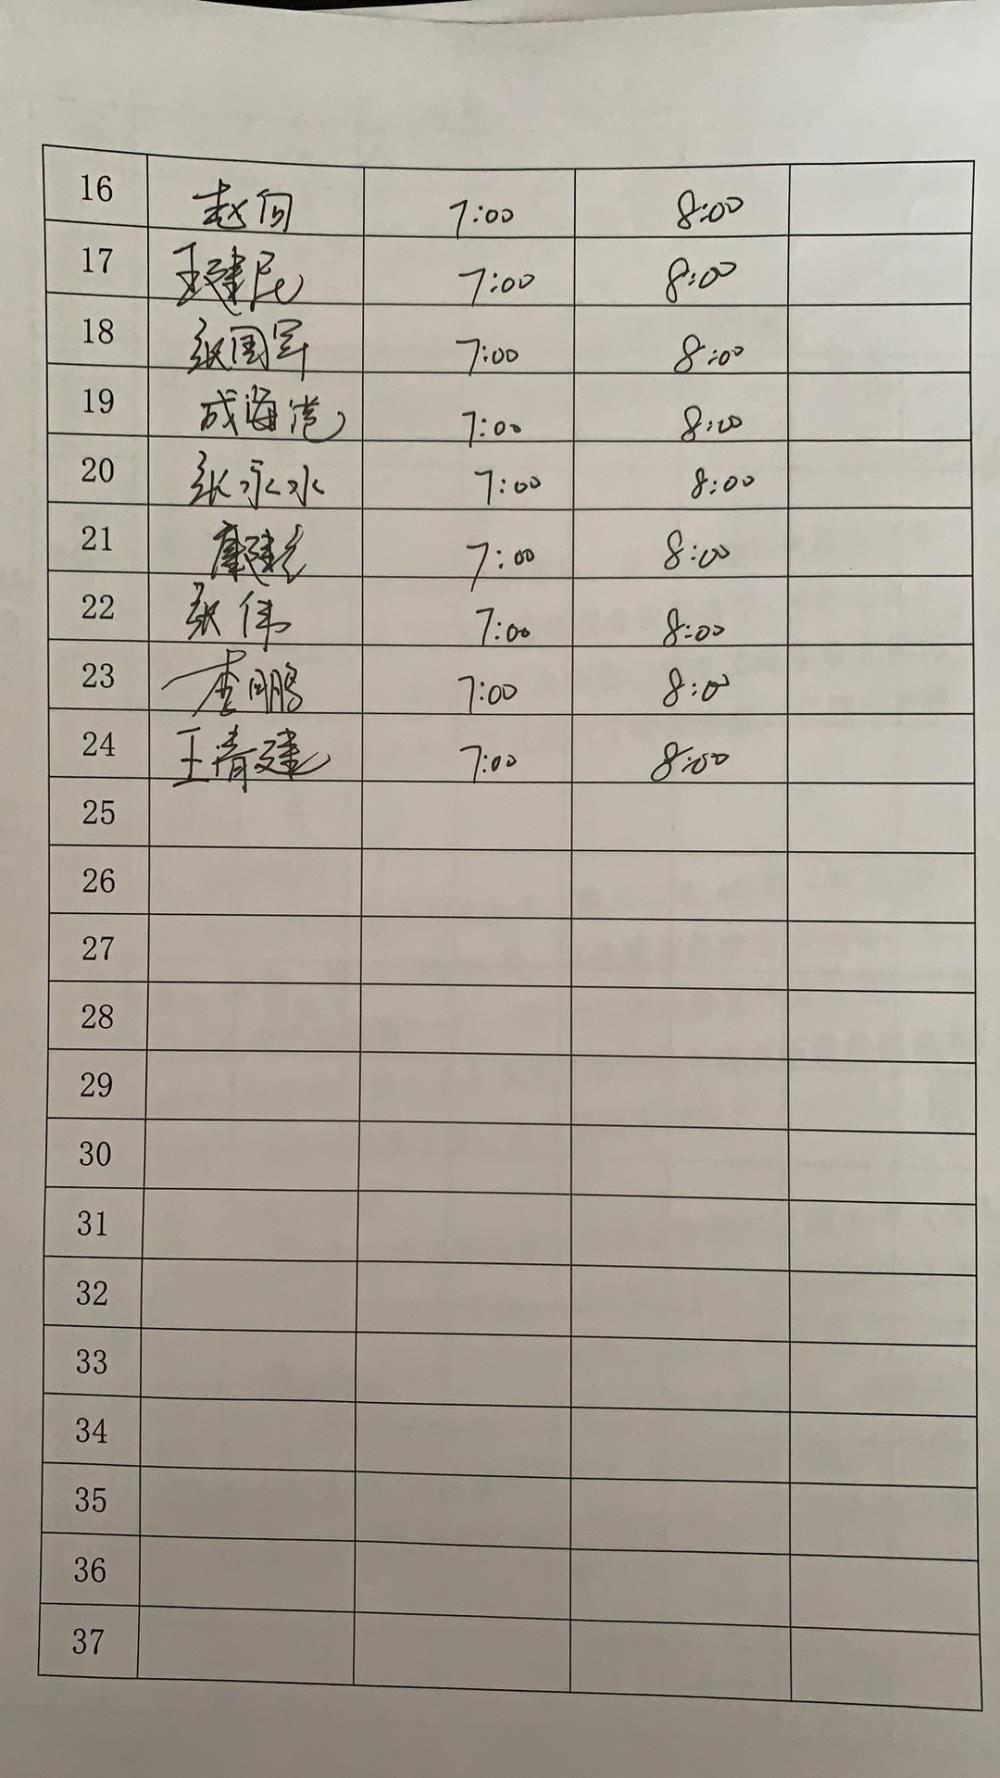 16 赵何 7:00 8:00
17 王建民 7:00 8:00
18 张国军 7:00 8:00
19 成海港 7:00 8:00
20 张永水 7:00 8:00
21 康建 7:00 8:00
22 张伟 7:00 8:00
23 李鹏 7:00 8:00
24 王青建 7:00 8:00
25
26
27
28
29
30
31
32
33
34
35
36
37